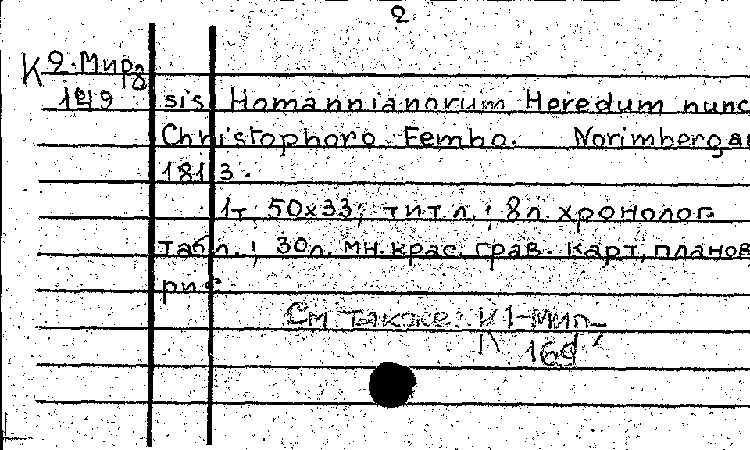 2
К 2-Мир 3
149 sis Homannianorum Heredum nunc
Christophoro Fembo. Norimbergae
1813.
1т; 50х33; тит л.; 8л. хронолог.
табл.; 30л. мн. крас. грав. карт, планов
рис
См также: К 1-Мир
169